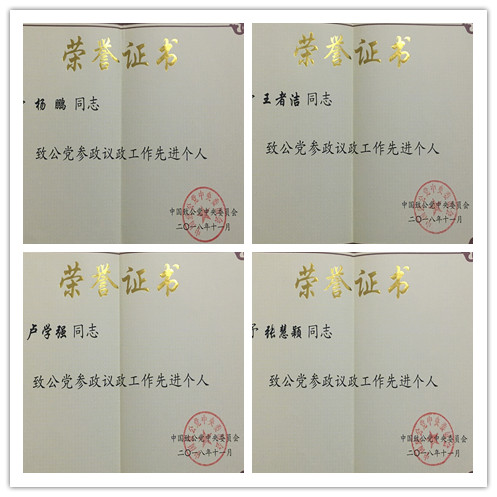 荣誉证书
杨鹏 同志
致公党参政议政工作先进个人
中国致公党中央委员会
二〇一八年十一月
荣誉证书
王者洁 同志
致公党参政议政工作先进个人
中国致公党中央委员会
二〇一八年十一月
荣誉证书
卢学强 同志
致公党参政议政工作先进个人
中国致公党中央委员会
二〇一八年十一月
荣誉证书
予 张慧颖 同志
致公党参政议政工作先进个人
中国致公党中央委员会
二〇一八年十一月